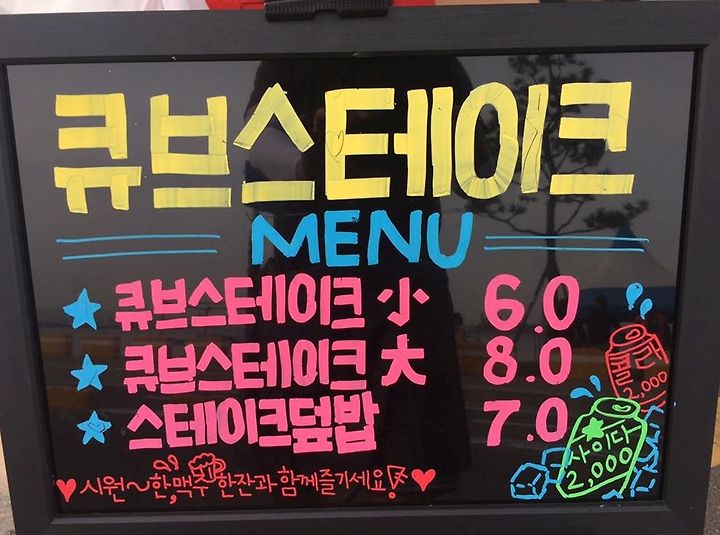 큐브스테이크
MENU
큐브스테이크 小 6.0
큐브스테이크 大 8.0
스테이크덮밥 7.0
콜라
2,000
사이다
2,000
시원~한 맥주 한잔과 함께즐기세요!